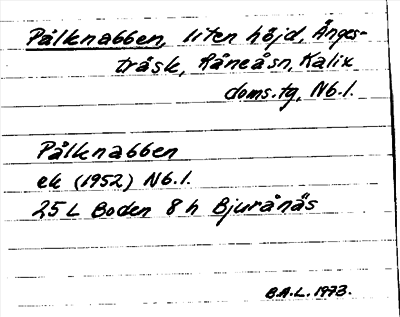 Pålknabben, liten höjd, Änges-
träsk, Råneåsn, Kalix
doms.tg, Nb.l.
Pålknabben
ek (1952) Nb.l.
25 L Boden 8 h Bjurånäs
B.A.L. 1973.